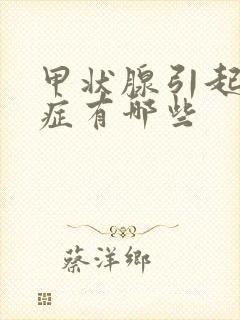 甲状腺引起
症有哪些
蔡洋鄉